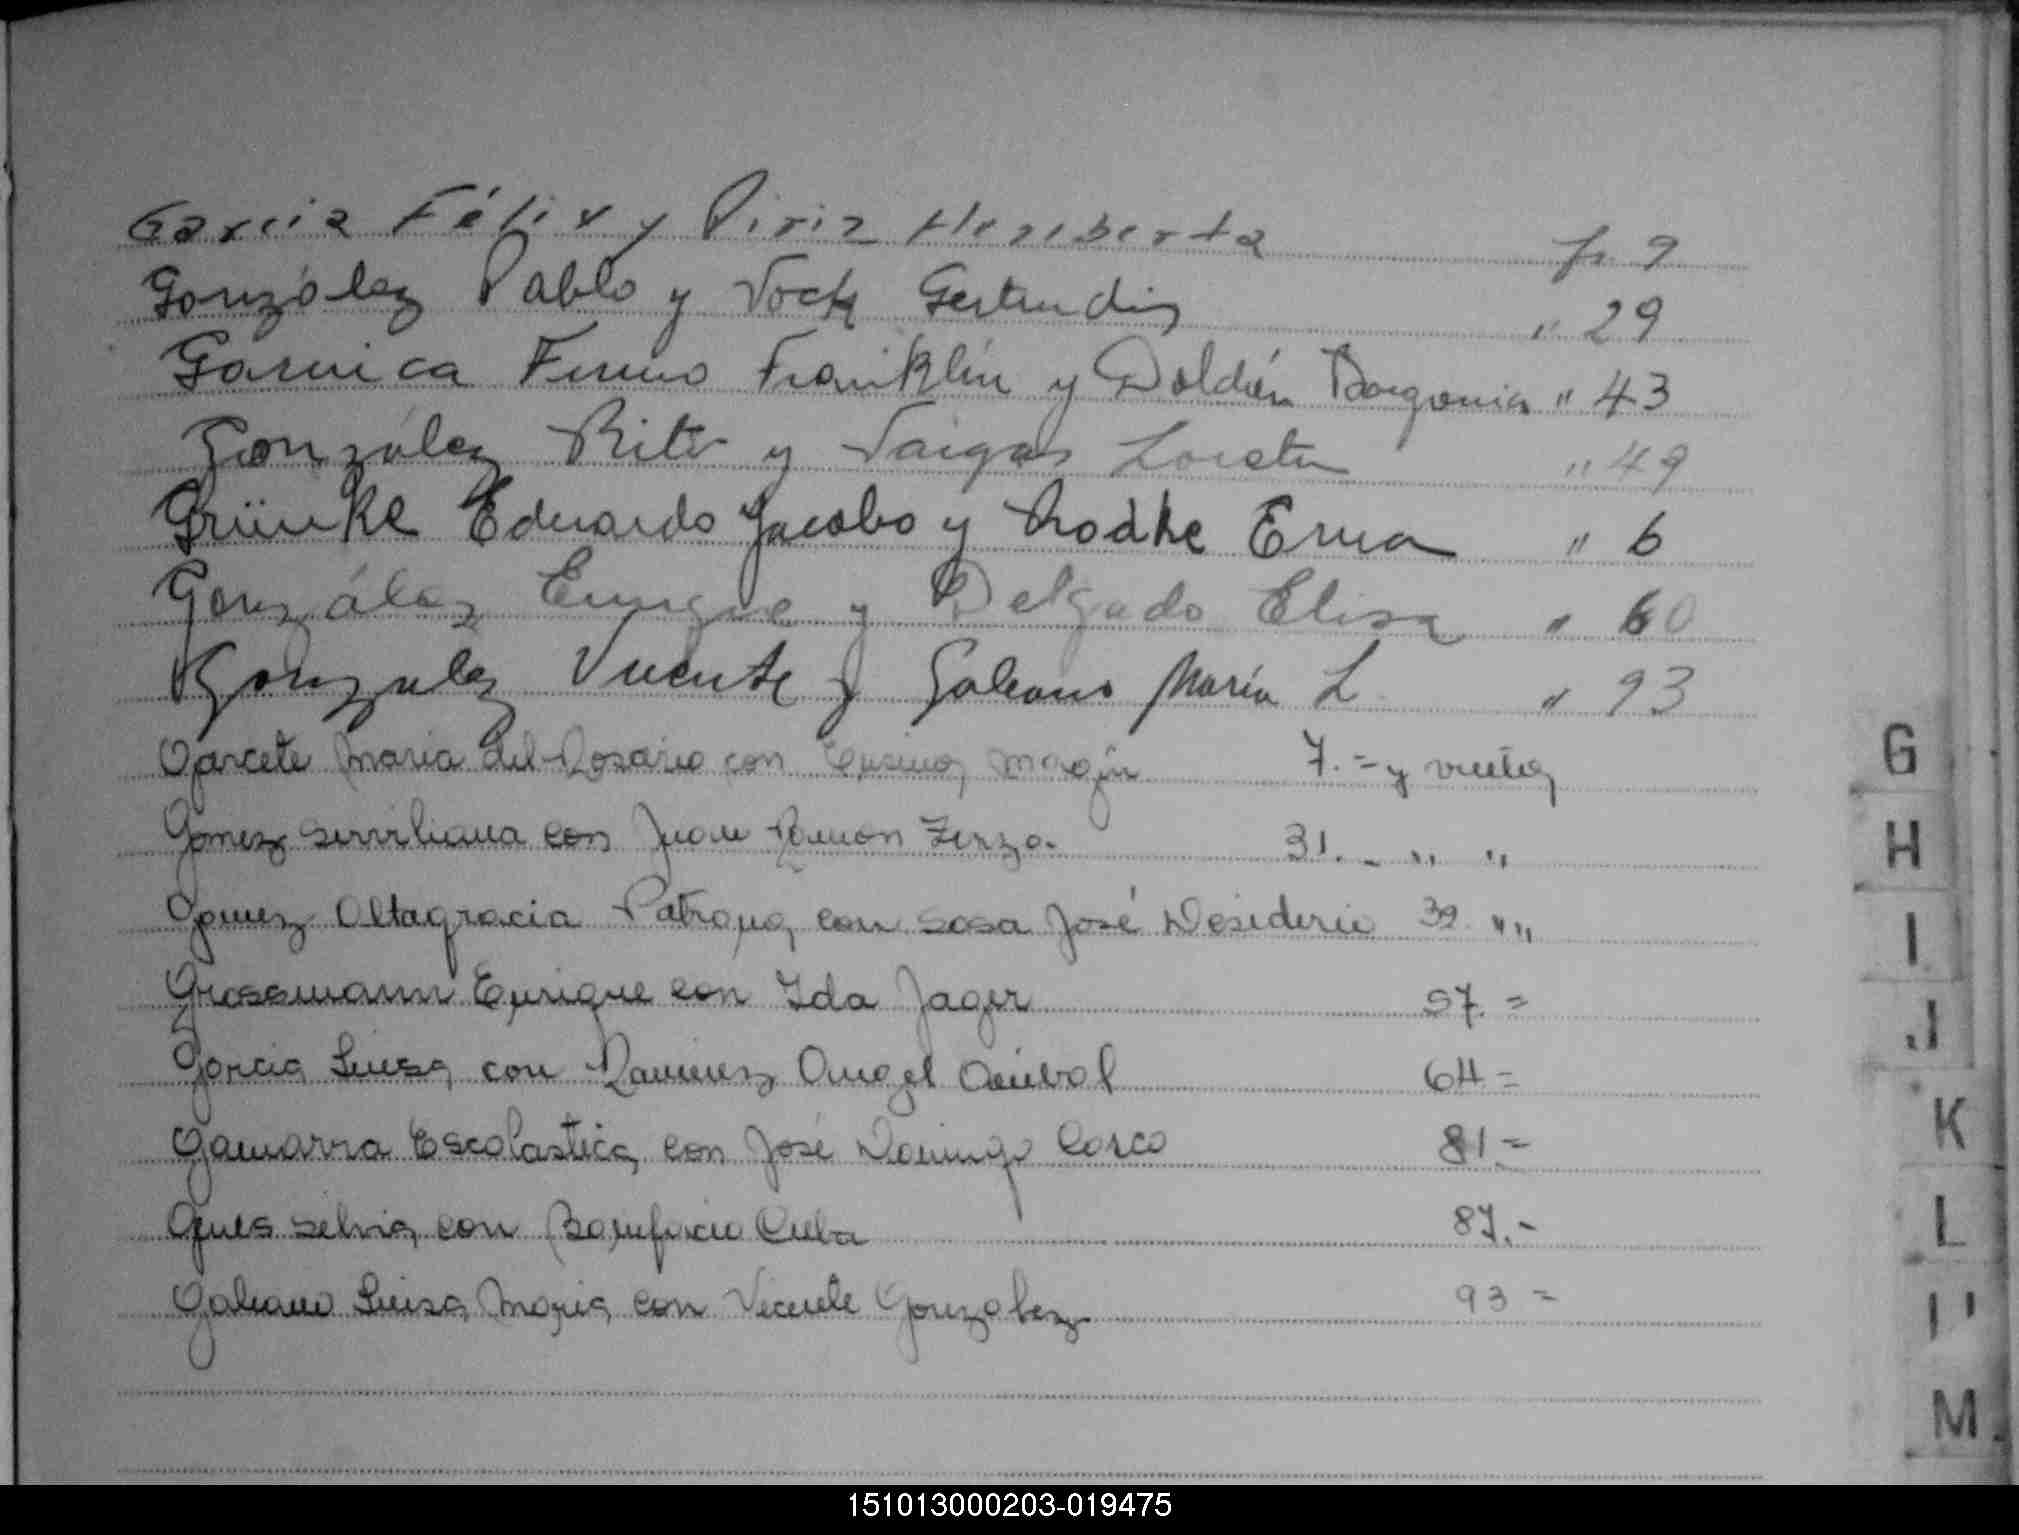 Garcia Félix y Piriz Heriberta fs. 9
González Pablo y Vock Gertrudis " 29
Garnica Firmo Franklin y Doldán " 43
González Rito y Vargas Loreta " 49
Grünke Eduardo Jacobo y Radke Erna " 6
González Enrique y Delgado Elisa " 60
Gonzalez Vicente y Galeano María L. " 93
Garcete Maria del Rosario con 7.= y vuelta
Gomez con Juan Ramon 31.- " "
Gomez Altagracia Patrona con Sosa José Desiderio 39. " "
Grassmann Enrique con Ida Jager 57.=
Garcia Luisa con Ramirez Angel Anibal 64=
Gamarra Escolastica con José Domingo 81.=
Silvia con Bonifacio 87.-
Galeano Luisa Maria con Vicente Gonzalez 93=
G
H
I
J
K
L
M
151013000203-019475